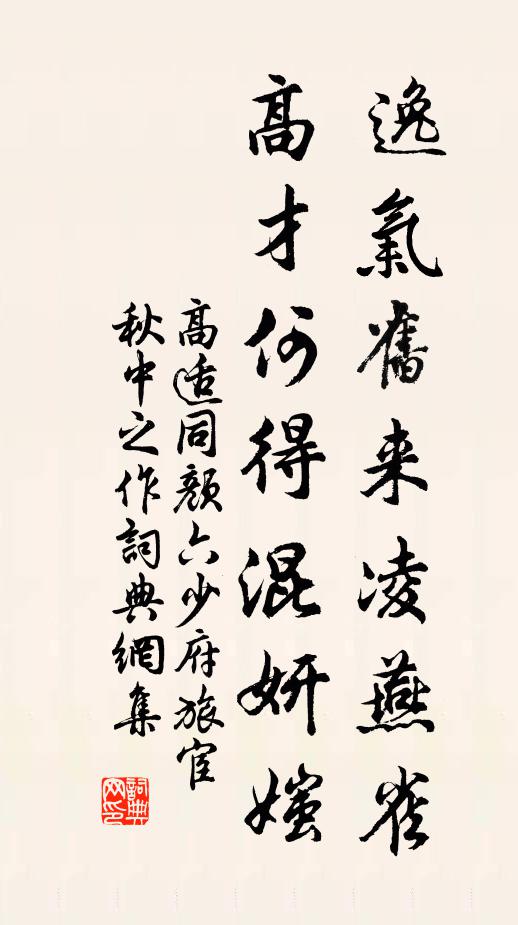 逸氣舊来凌燕雀
高才何得混妍媸
高适同顔六少府旅宦
秋中之作詞典網集
詞典
网印